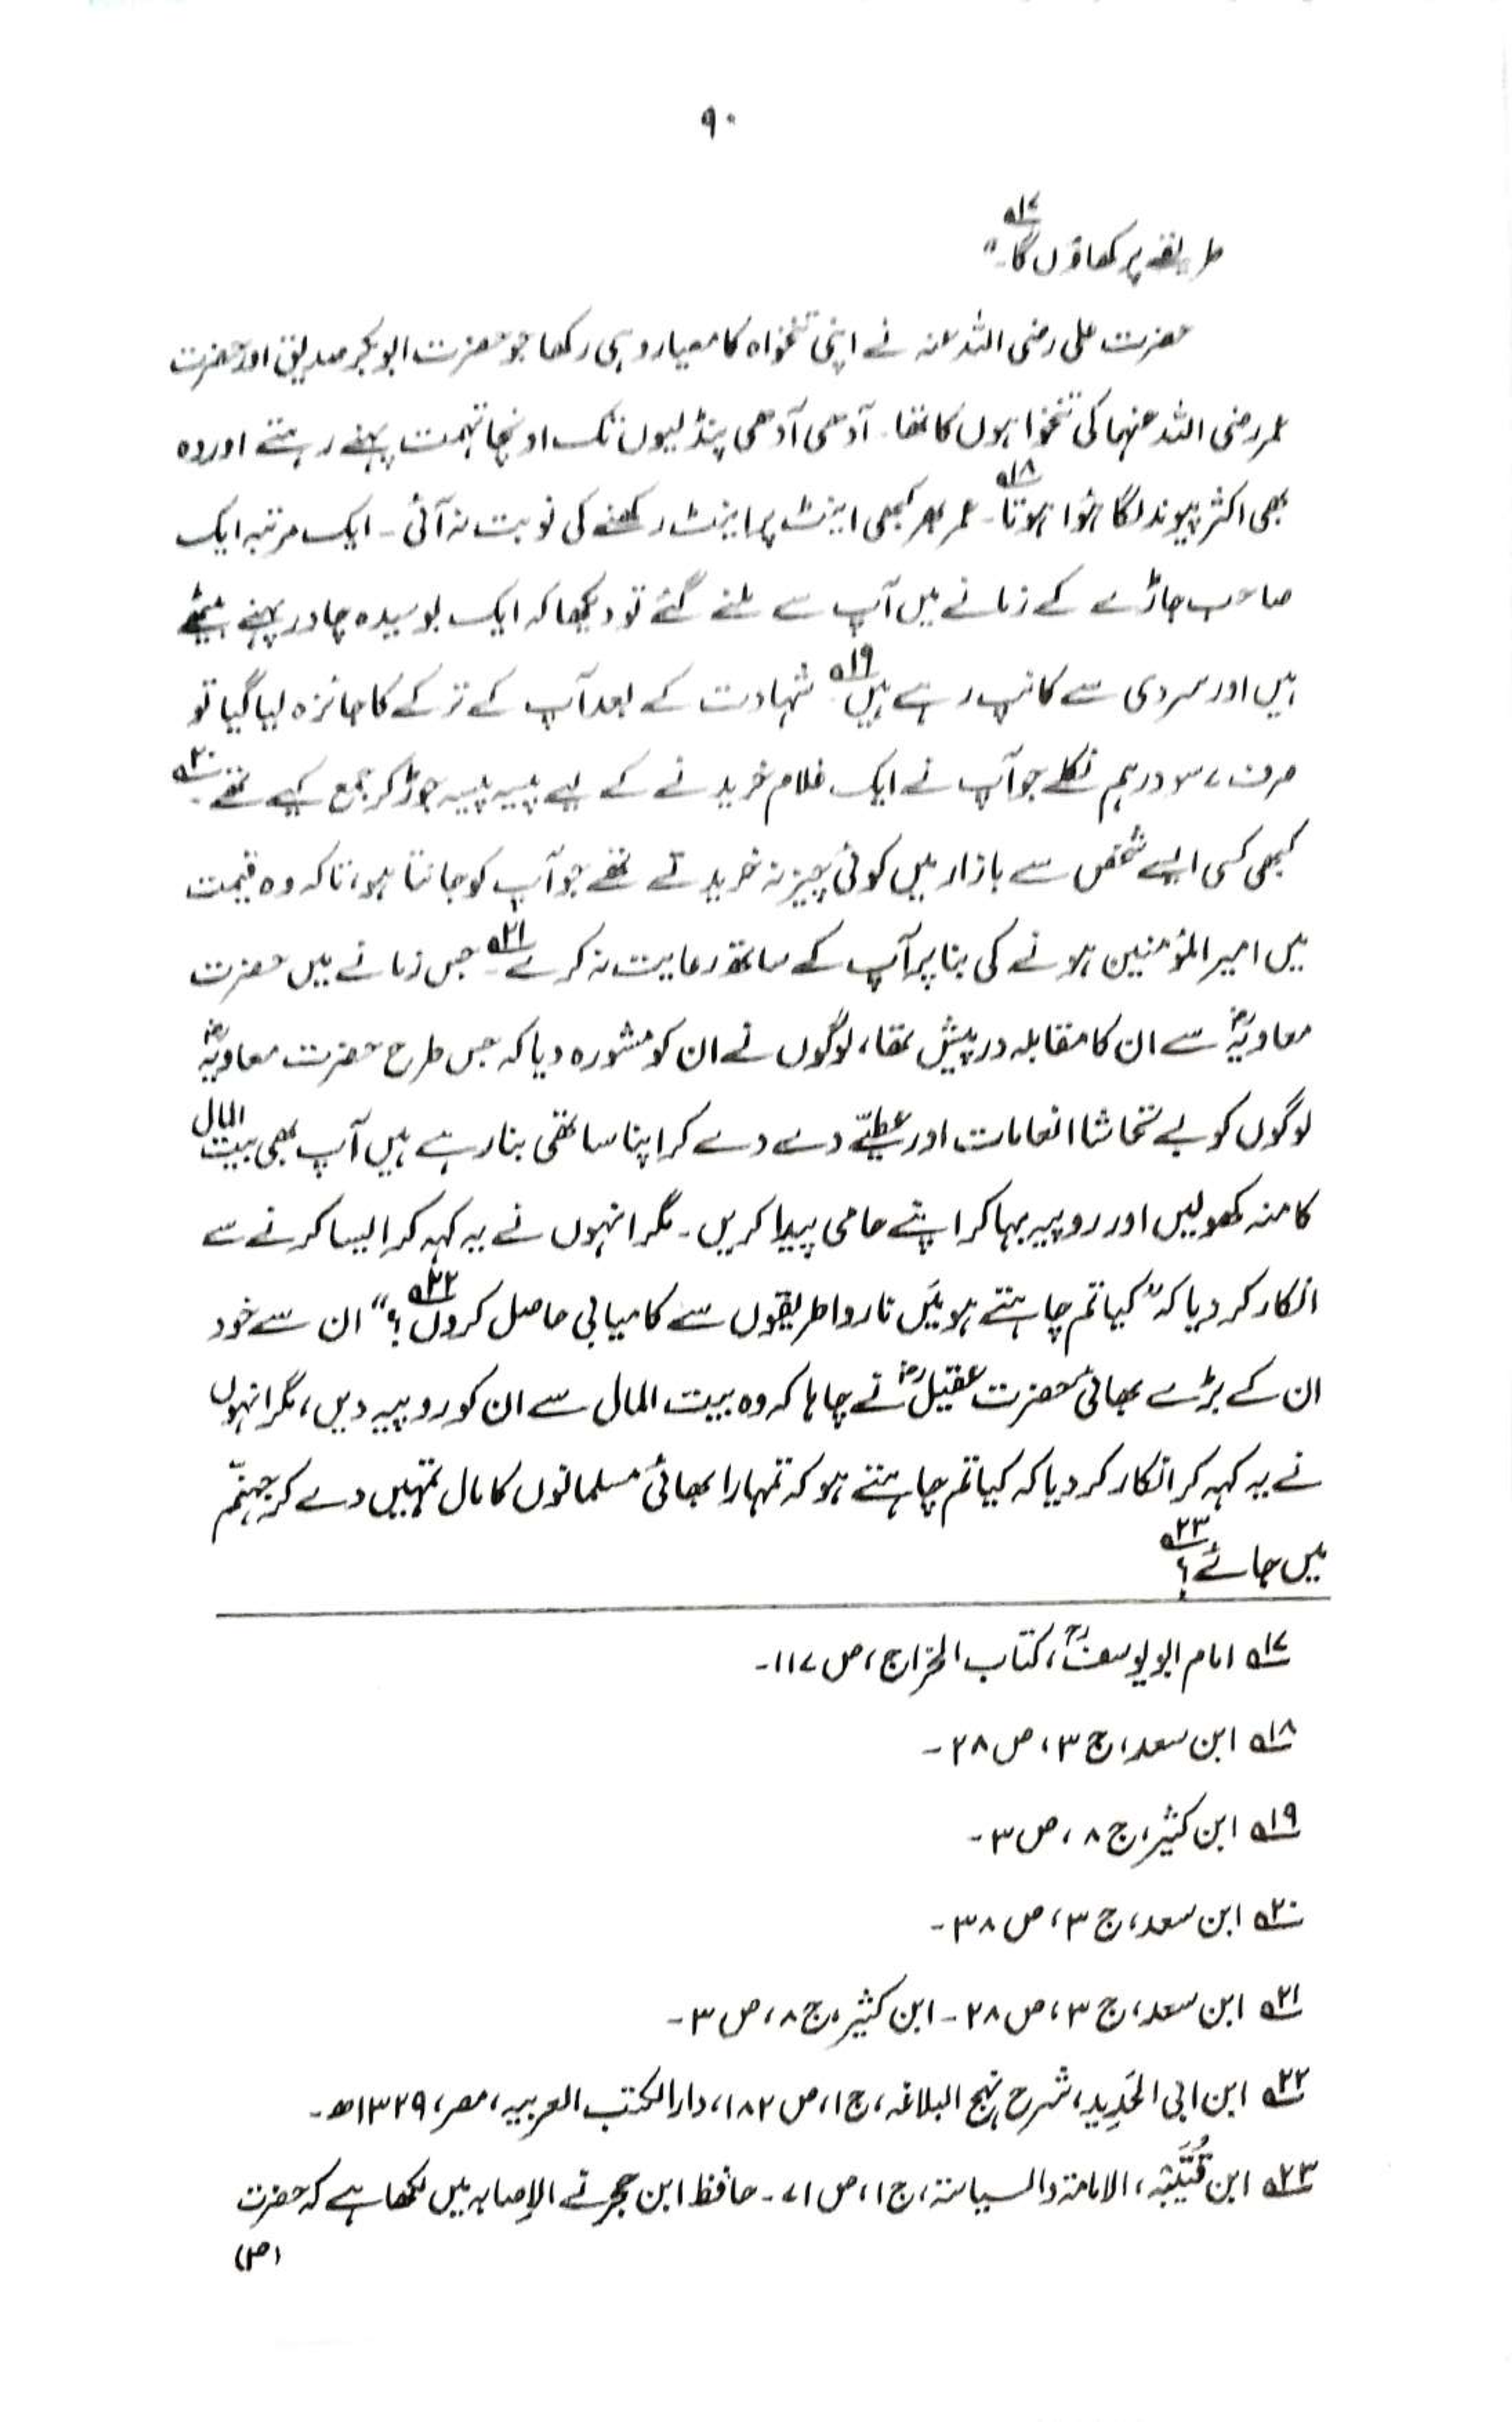 ۹۰
طریقے پر کھاؤں گا۔" ۱۷؎
حضرت علی رضی اللہ عنہ نے اپنی تنخواہ کا معیار وہی رکھا جو حضرت ابوبکر صدیق اور حضرت
عمر رضی اللہ عنہما کی تنخواہوں کا تھا۔ آدھی آدھی پنڈلیوں تک اونچا تہمت پہنے رہتے اور وہ
بھی اکثر پیوند لگا ہوا ہوتا۔ ۱۸؎ عمر بھر کبھی اینٹ پر اینٹ رکھنے کی نوبت نہ آئی۔ ایک مرتبہ ایک
صاحب جاڑے کے زمانے میں آپ سے ملنے گئے تو دیکھا کہ ایک بوسیدہ چادر پہنے بیٹھے
ہیں اور سردی سے کانپ رہے ہیں۔ ۱۹؎ شہادت کے بعد آپ کے ترکے کا جائزہ لیا گیا تو
صرف ۷ سو درہم نکلے جو آپ نے ایک غلام خریدنے کے لیے پیسہ پیسہ جوڑ کر جمع کیے تھے۔ ۲۰؎
کبھی کسی ایسے شخص سے بازار میں کوئی چیز نہ خریدتے تھے جو آپ کو جانتا ہو، تاکہ وہ قیمت
میں امیر المؤمنین ہونے کی بنا پر آپ کے ساتھ رعایت نہ کرے۔ ۲۱؎ جس زمانے میں حضرت
معاویہؓ سے ان کا مقابلہ درپیش تھا، لوگوں نے ان کو مشورہ دیا کہ جس طرح حضرت معاویہؓ
لوگوں کو بے تحاشا انعامات اور عطیّے دے دے کر اپنا ساتھی بنا رہے ہیں آپ بھی بیت المال
کا منہ کھولیں اور روپیہ بہا کر اپنے حامی پیدا کریں۔ مگر انہوں نے یہ کہہ کر ایسا کرنے سے
انکار کر دیا کہ "کیا تم چاہتے ہو میَں ناروا طریقوں سے کامیابی حاصل کروں؟" ۲۲؎ ان سے خود
ان کے بڑے بھائی حضرت عقیلؓ نے چاہا کہ وہ بیت المال سے ان کو روپیہ دیں، مگر انہوں
نے یہ کہہ کر انکار کر دیا کہ کیا تم چاہتے ہو کہ تمہارا بھائی مسلمانوں کا مال تمہیں دے کر جہنّم
میں جائے؟ ۲۳؎
۱۷؎ امام ابویوسفؒ، کتاب الخراج، ص ۱۱۷۔
۱۸؎ ابن سعد، ج ۳، ص ۲۸۔
۱۹؎ ابن کثیر، ج ۸، ص ۳۔
۲۰؎ ابن سعد، ج ۳، ص ۳۸۔
۲۱؎ ابن سعد، ج ۳، ص ۲۸۔ ابن کثیر، ج ۸، ص ۳۔
۲۲؎ ابن ابی الحَدِید، شرح نہج البلاغہ، ج ۱، ص ۱۸۲، دارالکتب العربیہ، مصر، ۱۳۲۹ھ۔
۲۳؎ ابن قُتَیْبَہ، الامامۃ والسیاسۃ، ج ۱، ص ۷۱۔ حافظ ابن حجر نے الاِصابہ میں لکھا ہے کہ حضرت